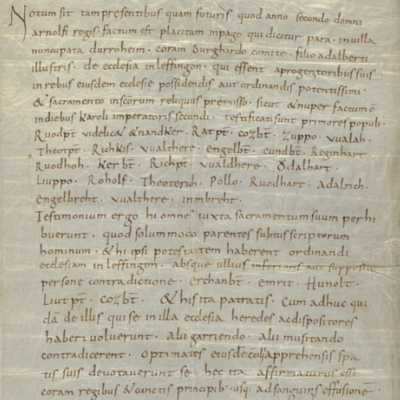 Notum sit tam presentibus quam futuris quod anno secundo domni
arnolfi regis factum est placitum inpago qui dicitur para. inuilla
nuncupata durroheim. coram burghardo comite. filio adalberti
illustris. de ecclesia inleffingon. qui essent aprogenitoribus suis
inrebus eiusdem ecclesię possidendis aut ordinandis potentissimi.
& sacramento inscorum reliquiis premisso. sicut & nuper factum ē
indiebus karoli imperatoris secundi. testificati sunt primores populi.
Ruodpt uidelic& nandker. Ratpt. cozbt. Zuppo. uualah.
Theotpt. Richkis. uualthere. engelbt. cundbt. Reginhart
Ruodhoh. kerbt. Richpt. uualdhere. Odalhart.
Liuppo. Roholf. Theoterih. Pollo. Ruodhart. adalrich.
Engelbreht. uualthere. inmbreht.
Testimonium ergo hi omnes iuxta sacramentum suum perhi
buerunt. quod solummodo parentes subtus scriptorum
hominum. & hi ipsi potestatem haberent ordinandi
ecclesiam inleffingon. absque ullius inferioris aut
persone contradictione. erchanbt. emrit. Hunolt.
Liutpt. cozbt. & his ita patratis. Cum adhuc qui
dā de illis qui se inilla ecclesia heredes acdispositores
haberi uoluerunt. Alii garriendo. Alii musitando
contradicerent. Optimates eiusdē apprehensis spa
tis suis deuotauerunt se hęc ita affirmaturos esse
coram regibus & cunctis principib. usq; ad sanguinis effusionē.